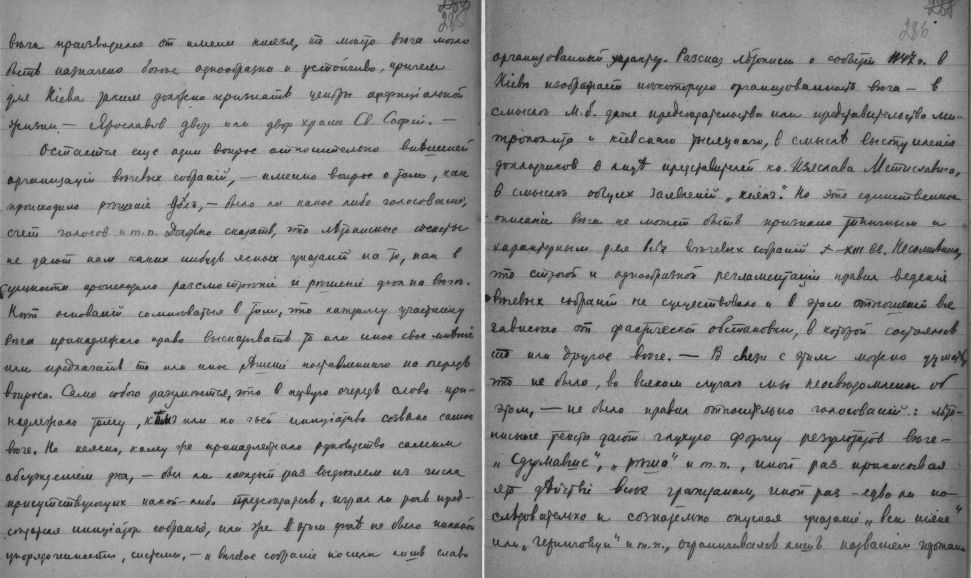 285
веча производилось от имени князя, то место веча могло
быть назначено более однообразно и устойчиво, причем
для Кіева таким должно признать центры оффиціальной
жизни — Ярославов двор или двор храма Св. Софіи. —
Остается еще один вопрос относительно внѣшней
организаціи вечевых собраній, — именно вопрос о том, как
происходило рѣшеніе дѣл, — было ли какое либо голосованіе,
счет голосов и т. п. Должно сказать, что лѣтописные
не дают нам каких нибудь ясных указаній на то, как в
сущности происходило разсмотрѣніе и рѣшеніе дѣл на вѣче.
Нѣт основаній сомнѣваться в том, что каждому участнику
веча принадлежало право высказывать то или иное свое мнѣніе
или предлагать то или иное рѣшеніе поставленнаго на очередь
вопроса. Само собою разумѣется, что в первую очередь слово при-
надлежало тому, кѣм или по чьей инициативѣ созвано самое
вече. Но неясно, кому же принадлежало руководство самим
обсужденіем дѣла, — был ли каждый раз выдѣляем из числа
присутствующих какой-либо предсѣдатель, играл ли роль пред-
сѣдателя инициатор собранія, или же в этом дѣлѣ не было никакой
упорядоченности, системы, — и вечевое собраніе носило лишь слабо
286
организованный характер. Разсказ лѣтописи о событіи 1147 г. в
Кіевѣ изображает нѣкоторую организованность веча — в
смыслѣ м. б. даже предсѣдательства или представительства ми-
трополита и кіевскаго тысяцкаго, в смыслѣ выступленія
докладчиков в лицѣ представителей кн. Изяслава Мстиславича,
в смыслѣ общих заявленій „кіян". Но это единственное
описаніе веча не может быть признано типичным и
характерным для всѣх вечевых собраній X–XIII вв. Несомнѣнно,
что строгой и однообразной регламентаціи правил веденія
вечевых собраній не существовало и в этом отношеніи все
зависѣло от фактической обстановки, в которой состоялось
то или другое вече. — В связи с этим можно думать,
что не было, во всяком случаѣ мы неосвѣдомлены об
этом, — не было правил относительно голосованій: лѣто-
писные тексты дают глухую форму результатов веча —
„Сдумавше", „рѣша" и т. п., иной раз приписывая
это дѣйствіе всѣм гражданам, иной раз — едва ли по-
слѣдовательно и сознательно опуская указаніе „вси кіяне"
или „черниговци" и т. п., ограничиваясь лишь названіем горожан